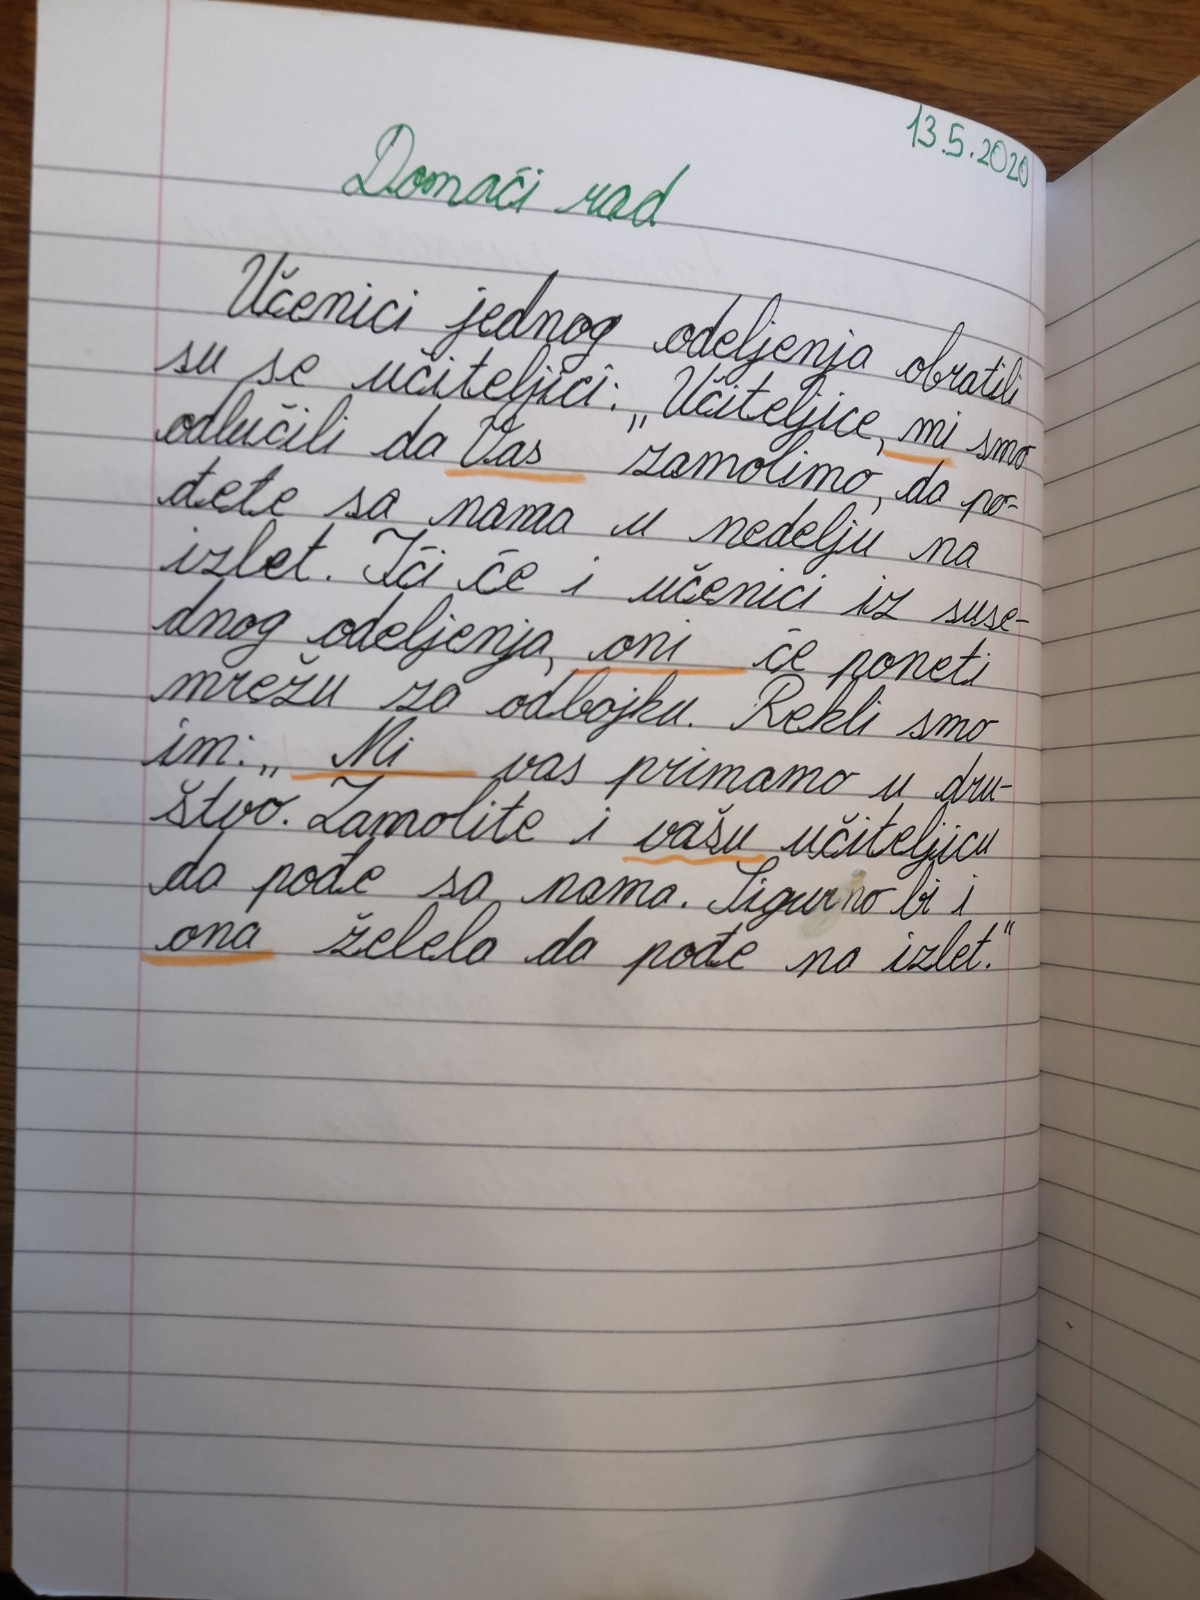 13.5.2020
Domaći rad
Učenici jednog odeljenja obratili
su se učiteljici: „Učiteljice, mi smo
odlučili da Vas zamolimo, da po-
đete sa nama u nedelju na
izlet. Ići će i učenici iz suse-
dnog odeljenja, oni će poneti
mrežu za odbojku. Rekli smo
im: „ Mi vas primamo u dru-
štvo. Zamolite i vašu učiteljicu
da pođe sa nama. Sigurno bi i
ona želela da pođe na izlet.“